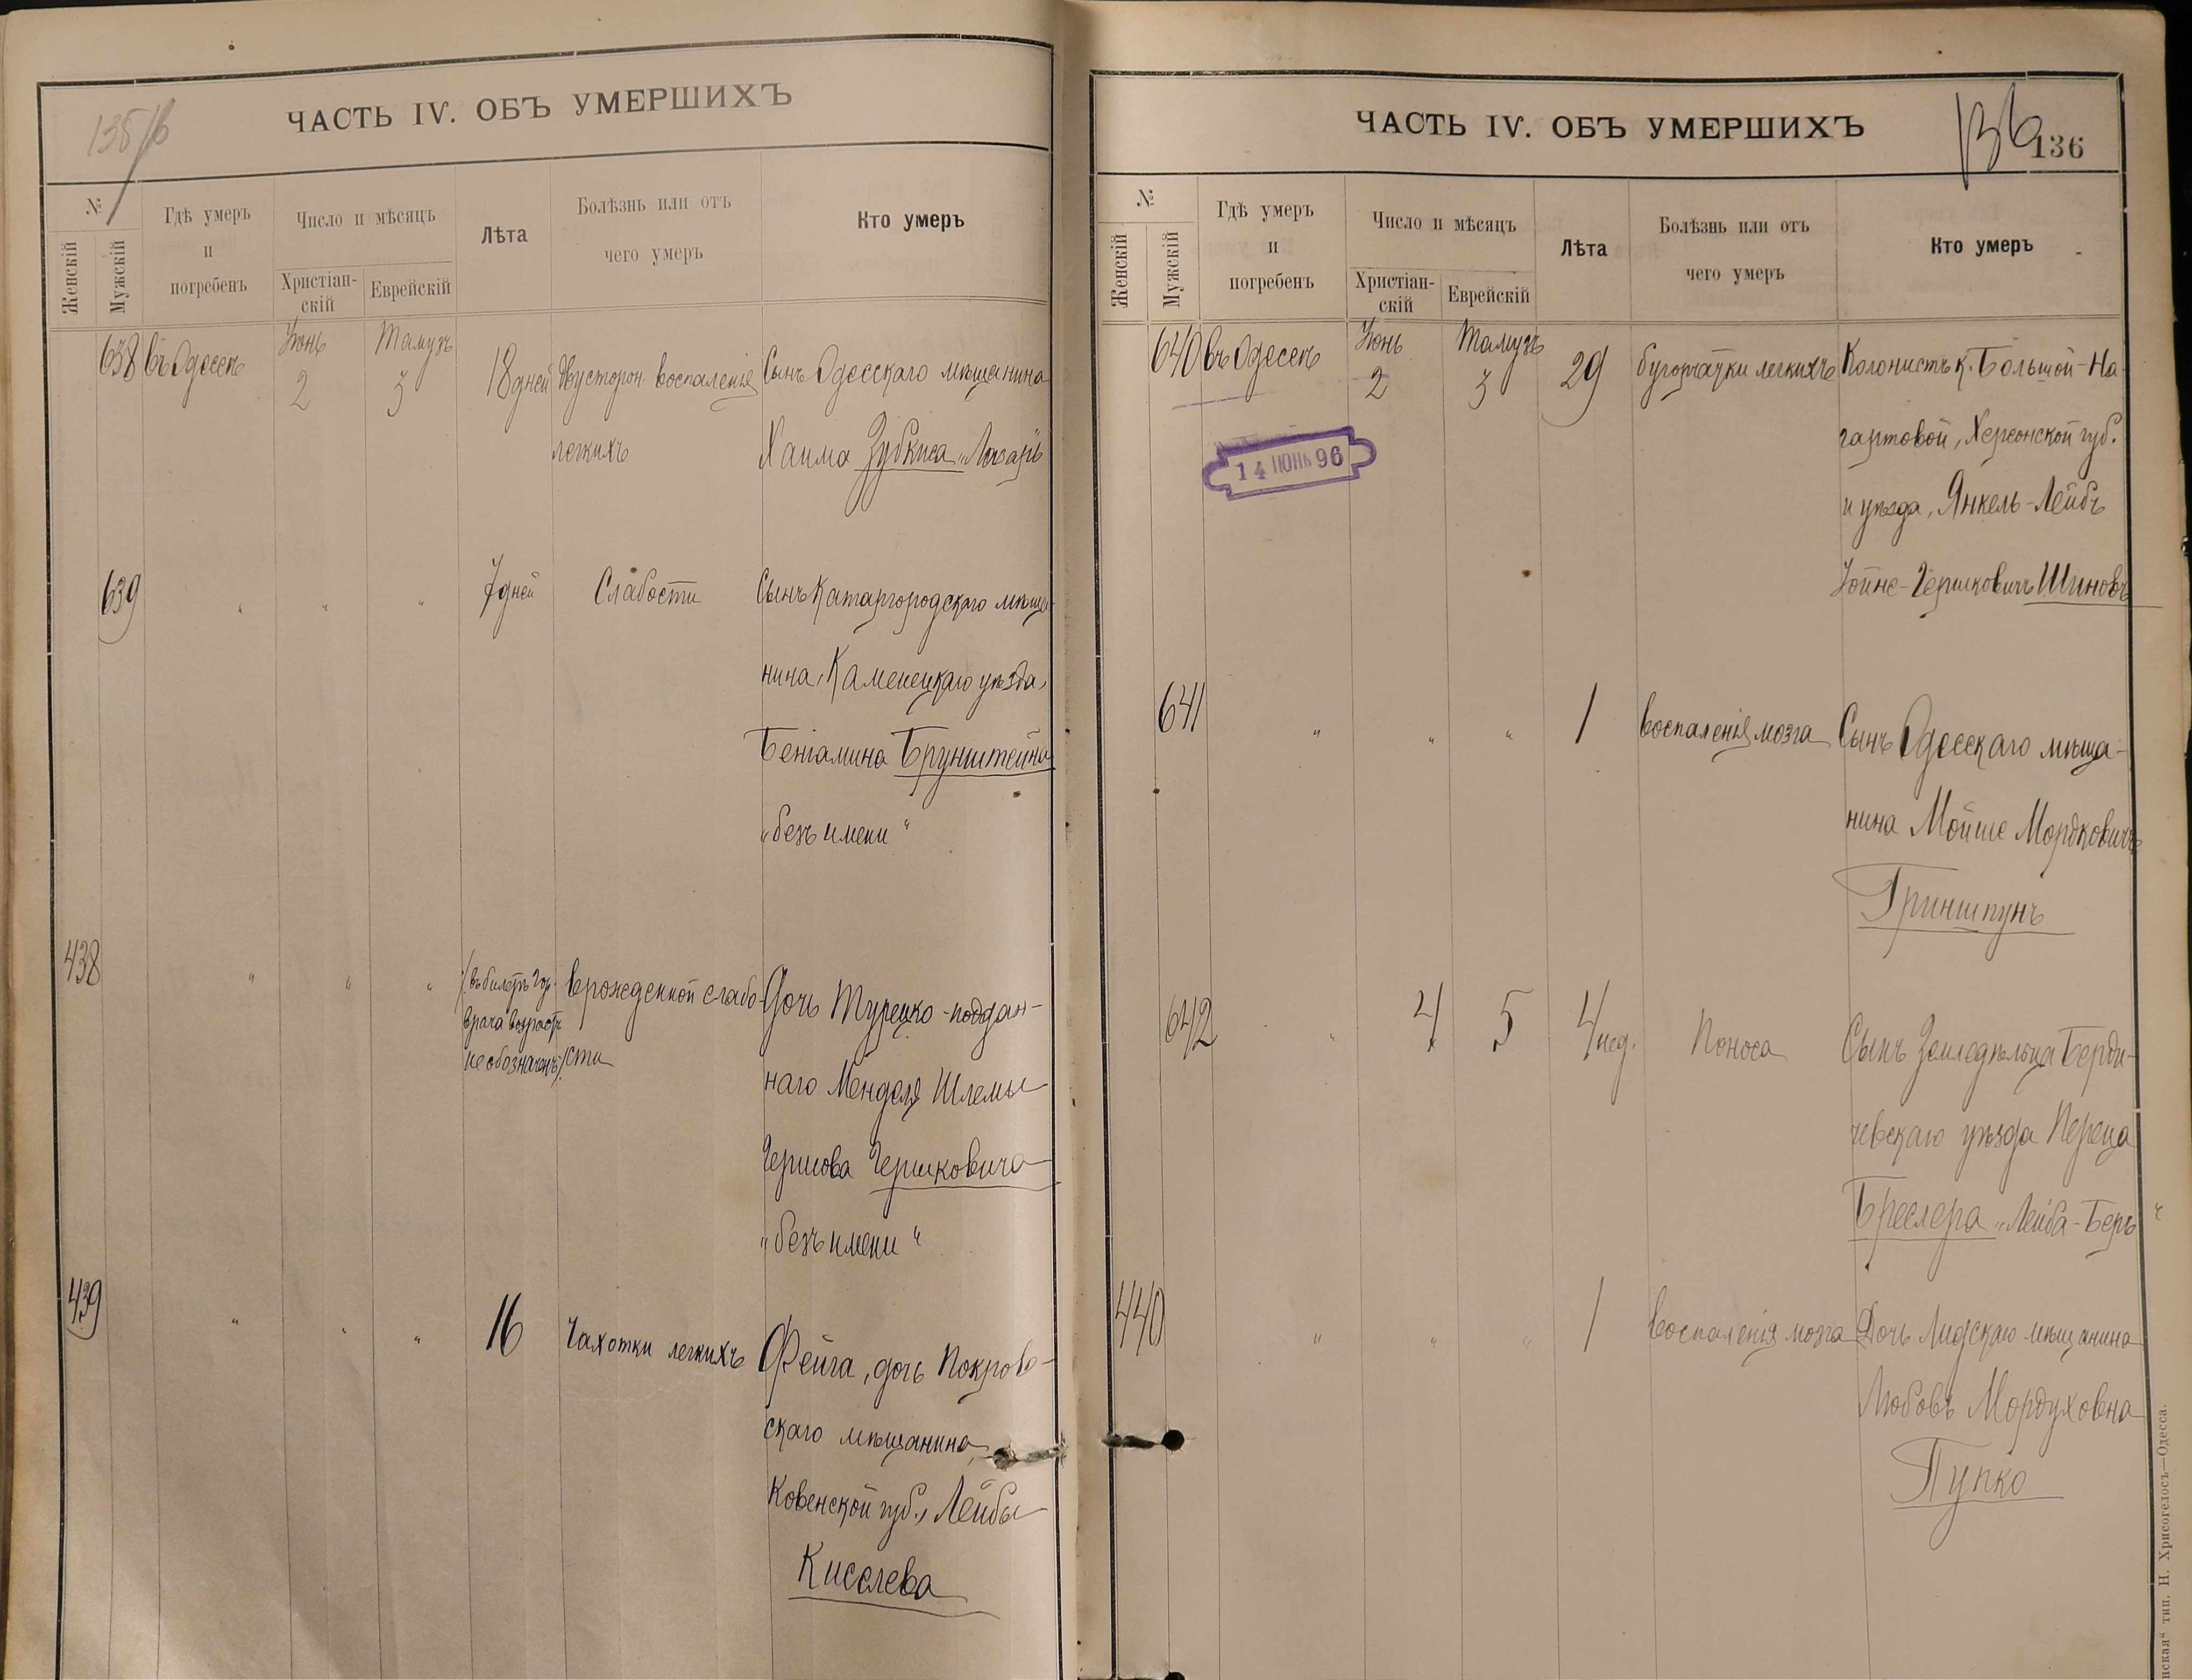 135/б
ЧАСТЬ IV. ОБЪ УМЕРШИХЪ
№
Женскій
Мужскій
Гдѣ умеръ
и
погребенъ
Число и мѣсяцъ
Христіан-
скій
Еврейскій
Лѣта
Болѣзнь или отъ
чего умеръ
Кто умеръ
638 въ Одессѣ Іюнь 2 Тамузъ 3 18 дней двусторон. воспаленія Сынъ Одесскаго мѣщанина
легкихъ Хаима Зубкиса „Лазарь“
639 „ „ „ 7 дней Слабости Сынъ Катаргородскаго мѣща-
нина, Каменецкаго уѣзда,
Беніамина Брунштейна
„безъ имени“
438 „ „ „ /въ билетѣ гор. врожденной слабо- Дочь Турецко-поддан-
врача возрастъ
не обозначенъ/ сти
наго Менделя Шлемы
Гершова Гершковича
„безъ имени“
439 „ „ „ 16 Чахотки легкихъ Фейга, дочь Покров-
скаго мѣщанина,
Ковенской губ., Лейбы
Киселева
ЧАСТЬ IV. ОБЪ УМЕРШИХЪ
136
136
№
Женскій
Мужскій
Гдѣ умеръ
и
погребенъ
Число и мѣсяцъ
Христіан-
скій
Еврейскій
Лѣта
Болѣзнь или отъ
чего умеръ
Кто умеръ
640 въ Одессѣ Іюнь 2 Тамузъ 3 29 бугорчатки легкихъ Колонистъ к. Большой-На-
14 ІЮНЬ 96
гартовой, Херсонской губ.
и уѣзда, Янкель-Лейбъ
Іойне-Гершковичъ Шиновъ
641 „ „ „ 1 воспаленія мозга Сынъ Одесскаго мѣща-
нина Мойше Мордковичъ
Гриншпунъ
642 „ 4 5 4 нед. Поноса Сынъ Земледѣльца Берди-
чевскаго уѣзда Переца
Бреслера „Лейба-Беръ“
440 „ „ „ 1 воспаленія мозга Дочь Лидскаго мѣщанина
Любовь Мордуховна
Пупко
нская“ тип. Н. Хрисогелосъ—Одесса.